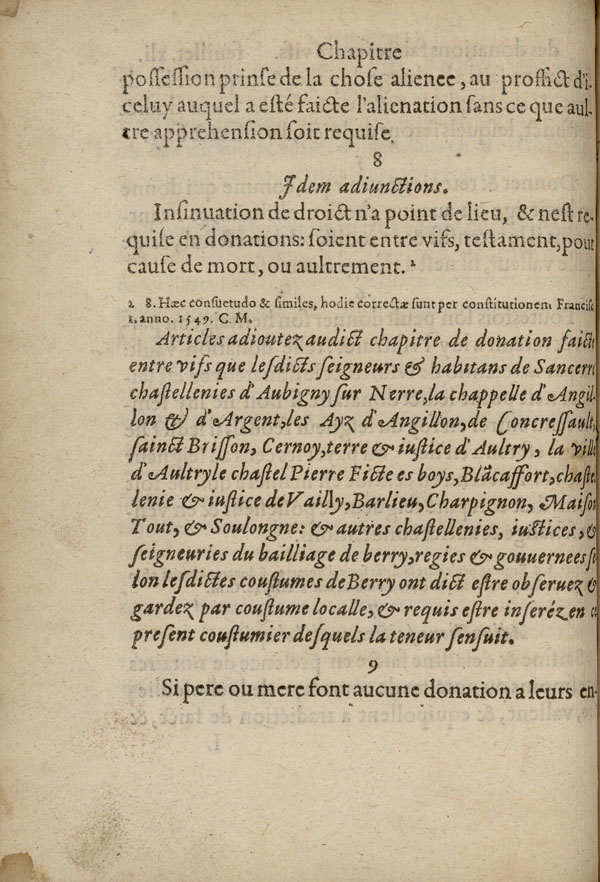 Chapitre
possession prinse de la chose alienee, au proffict d'i-
celuy auquel a esté faicte l'alienation sans ce que aul-
tre apprehension soit requise.
8
Idem adiunctions.
Insinuation de droict n'a point de lieu, & nest re-
quise en donations: soient entre vifs, testament, pour
cause de mort, ou aultrement. ²
2. 8. Hæc consuetudo & similes, hodie correctæ sunt per constitutionem Francisc
1. anno. 1549. C. M.
Articles adioutez audict chapitre de donation faicte
entre vifs que lesdicts seigneurs & habitans de Sancerre
chastellenies d'Aubigny sur Nerre, la chappelle d'Angil-
lon & d'Argent, les Ayz d'Angillon, de Concressault,
sainct Brisson, Cernoy, terre & iustice d'Aultry, la ville
d'Aultry le chastel Pierre Ficte es boys, Blācaffort, chaste
lenie & iustice de Vailly, Barlieu, Charpignon, Maison
Tout, & Soulongne: & autres chastellenies, iustices, &
seigneuries du bailliage de berry, regies & gouuernees se
lon lesdictes coustumes de Berry ont dict estre obseruez &
gardez par coustume localle, & requis estre inseréz en ce
present coustumier desquels la teneur sensuit.
9
Si pere ou mere font aucune donation a leurs en-